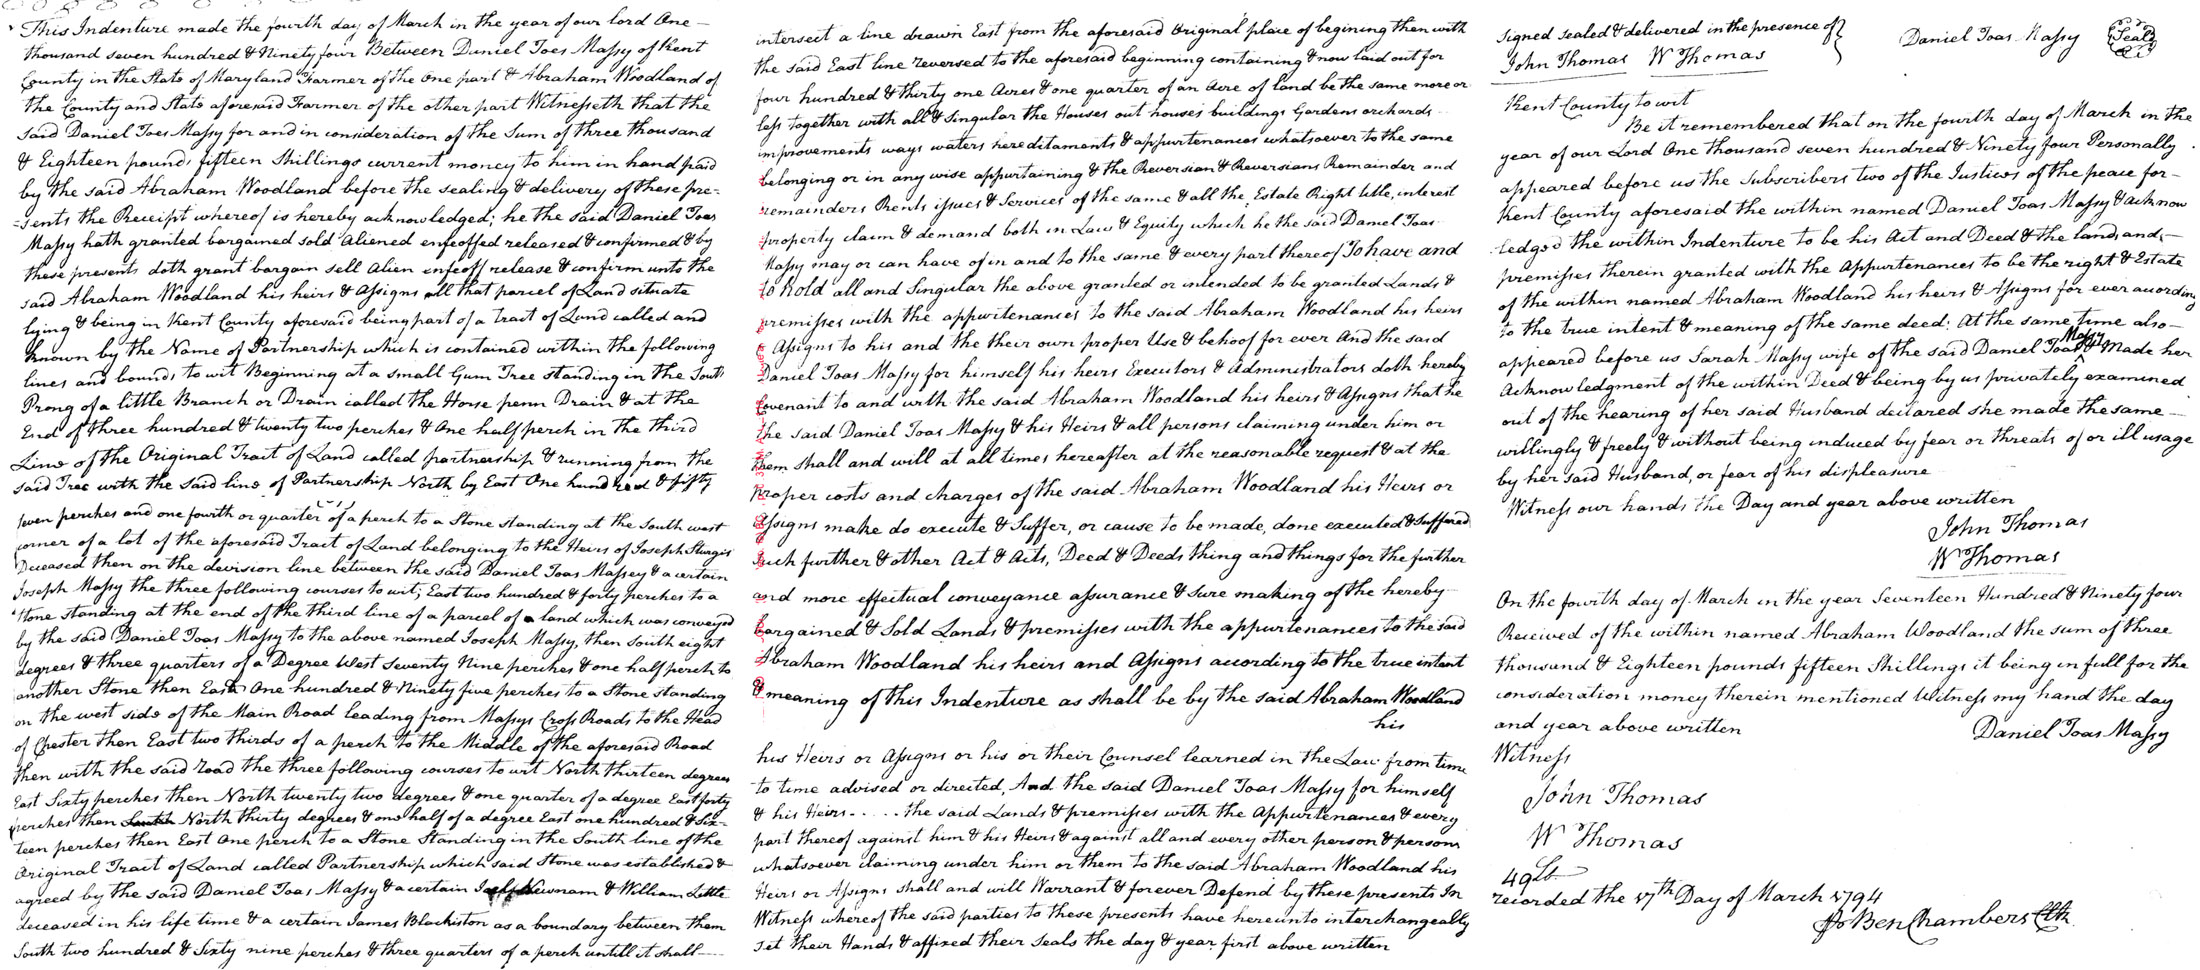 This Indenture made the fourth day of March in the year of our lord One
thousand seven hundred & Ninety four Between Daniel Toes Massy of Kent
County in the State of Maryland Farmer of the One part & Abraham Woodland of
the County and State aforesaid Farmer of the other part Witnesseth that the
said Daniel Toes Massy for and in consideration of the Sum of three thousand
& Eighteen pounds fifteen Shillings current money to him in hand paid
by the said Abraham Woodland before the sealing & delivery of these pre=
=sents the Receipt whereof is hereby acknowledged; he the said Daniel Toas
Massy hath granted bargained sold Aliened enfeoffed released & confirmed & by
these presents doth grant bargain sell Alien enfeoff release & confirm unto the
said Abraham Woodland his heirs & Assigns all that parcel of Land situate
lying & being in Kent County aforesaid being part of a tract of Land called and
known by the Name of Partnership which is contained within the following
lines and bounds to wit Beginning at a small Gum Tree standing in the South
Prong of a little Branch or Drain called the Horse penn Drain & at the
End of three hundred & twenty two perches & One half perch in the third
Line of the Original Tract of Land called partnership & running from the
said Tree with the said line of Partnership North by East One hundred & fifty
seven perches and one fourth or quarter of a perch to a Stone standing at the South west
corner of a lot of the aforesaid Tract of Land belonging to the Heirs of Joseph Sturgis
Deceased then on the devision line between the said Daniel Toas Massey & a certain
Joseph Massy the three following courses to wit; East two hundred & forty perches to a
Stone standing at the end of the third line of a parcel of land which was conveyed
by the said Daniel Toas Massy to the above named Joseph Massy, then south eight
degrees & three quarters of a Degree West seventy Nine perches & one half perch to
another Stone then East One hundred & Ninety five perches to a Stone standing
on the west side of the Main Road leading from Massys Cross Roads to the Head
of Chester then East two thirds of a perch to the Middle of the aforesaid Road
then with the said road the three following courses to wit North thirteen degrees
East Sixty perches then North twenty two degrees & one quarter of a degree East forty
perches then South North thirty degrees & one half of a degree East one hundred & Six=
teen perches then East One perch to a Stone Standing in the South line of the
Original Tract of Land called Partnership which said Stone was established &
agreed by the said Daniel Toas Massy & a certain Newnam & William Little
deceased in his life time & a certain James Blackiston as a boundary between them
South two hundred & Sixty nine perches & three quarters of a perch untill it shall
intersect a line drawn East from the aforesaid Original place of begining then with
the said East line reversed to the aforesaid beginning containing & now laid out for
four hundred & thirty one Acres & one quarter of an Acre of land be the same more or
less together with all & Singular the Houses out houses buildings Gardens orchards
improvements ways waters hereditaments & appurtenances whatsoever to the same
belonging or in any wise appurtaining & the Reversion & Reversians Remainder and
remainders Rents issues & Services of the same & all the Estate Right title, interest
property claim & demand both in Law & Equity which he the said Daniel Toas
Massy may or can have of in and to the same & every part thereof To have and
to hold all and Singular the above granted or intended to be granted Lands &
premisses with the appurtenances to the said Abraham Woodland his heirs
& Assigns to his and the their own proper Use & behoof for ever And the said
Daniel Toas Massy for himself his heirs Executors & Administrators doth hereby
Covenant to and with the said Abraham Woodland his heirs & Assigns that he
the said Daniel Toas Massy & his Heirs & all persons claiming under him or
them shall and will at all times hereafter at the reasonable request & at the
proper costs and charges of the said Abraham Woodland his Heirs or
Assigns make do execute & Suffer, or cause to be made, done executed & Suffered
such further & other Act & Acts, Deed & Deeds thing and things for the further
and more effectual conveyance assurance & sure making of the hereby
bargained & Sold Lands & premisses with the appurtenances to the said
Abraham Woodland his heirs and Assigns according to the true intent
& meaning of this Indenture as shall be by the said Abraham Woodland
his
his Heirs or Assigns or his or their Counsel learned in the Law from time
to time advised or directed, And the said Daniel Toas Massy for himself
& his Heirs - - . . . the said Lands & premisses with the Appurtenances & every
part thereof against him & his Heirs & against all and every other person & persons
whatsoever claiming under him or them to the said Abraham Woodland his
Heirs or Assigns shall and will Warrant & forever Defend by these presents In
Witness whereof the said parties to these presents have hereunto interchangeably
set their Hands & affixed their Seals the day & year first above written
Signed Sealed & delivered in the presence of
John Thomas W Thomas
Daniel Toas Massy Seal
Kent County to wit
Be it remembered that on the fourth day of March in the
year of our Lord One thousand seven hundred & Ninety four Personally
appeared before us the Subscribers two of the Justices of the peace for
Kent County aforesaid the within named Daniel Toas Massy & acknow
ledged the within Indenture to be his Act and Deed & the land, and
premisses therein granted with the Appurtenances to be the right & Estate
of the within named Abraham Woodland his heirs & Assigns for ever according
to the true intent & meaning of the same deed: At the same time also
appeared before us Sarah Massy wife of the said Daniel Toas Massy & Made her
Acknowledgment of the within Deed & being by us privately examined
out of the hearing of her said Husband declared she made the same
willingly & freely & without being induced by fear or threats of or ill usage
by her said Husband, or fear of his displeasure
Witness our hands the Day and year above written
John Thomas
W Thomas
On the fourth day of March in the year Seventeen Hundred & Ninety four
Received of the within named Abraham Woodland the sum of three
thousand & Eighteen pounds fifteen Shillings it being in full for the
consideration money therein mentioned Witness my hand the day
and year above written
Daniel Toas Massy
Witness
John Thomas
W Thomas
recorded the 17th Day of March 1794
Ben Chambers Clk